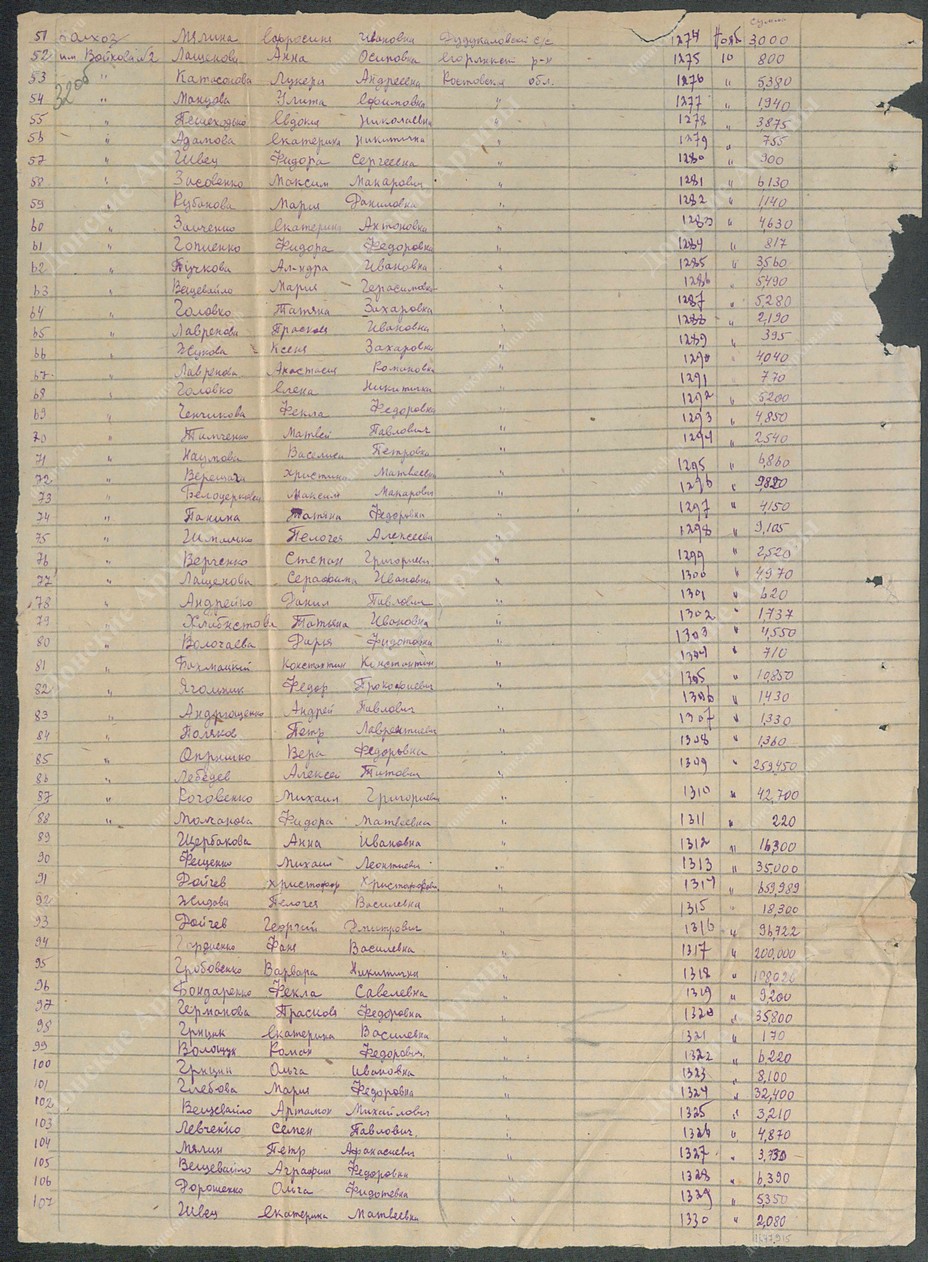 сумма
51 Колхоз Мялина Ефросиня Ивановна с/с 1274 Нояб 3000
52 им Войкова №2 Лащенова Анна Осиповна р-н 1275 10 800
53 " Лукера Андреевна Ростовская обл. 1276 " 5,380
3200
54 " Манцова Улита Ефимовна " 1277 " 1,940
55 " Пешеходько Евдокия Николаевна " 1278 " 3,875
56 " Адамова Екатерина Никитична " 1279 " 755
57 " Швец Фидора Сергеевна " 1280 " 900
58 " Засовенко Максим Макарович " 1281 " 6,130
59 " Рубанова Мария Даниловна " 1282 " 1,140
60 " Зайченко Екатерина Антоновна " 1283 " 4,630
61 " Гопиенко Фидора Федоровна " 1284 " 817
62 " Пучкова Ал-ндра Ивановна " 1285 " 3,560
63 " Вещевайло Мария Герасимовна " 1286 5,490
64 " Головко Татьяна Захаровна " 1287 " 5,280
65 " Лавренова Прасков Ивановна " 1288 " 2,190
66 " Жукова Ксения Захаровна " 1289 " 395
67 " Лавренова Анастасия Романовна " 1290 " 4040
68 " Головко Елена Никитична " 1291 " 770
69 " Ченчикова Фекла Федоровна " 1292 " 5200
70 " Тимченко Матвей Павлович " 1293 " 4,850
71 " Наумова Василиса Петровна " 1294 " 2540
72 " Верещага Христина Матвеевна " 1295 " 6,860
73 " Максим Макарович " 1296 " 9,890
74 " Панина Татьяна Федоровна " 1297 " 4,150
75 " Пелогея Алексеевна " 1298 " 9,105
76 " Верченко Степан Григориевич " 1299 " 2,520
77 " Лащенова Серафима Ивановна " 1300 " 4970
78 " Андрейко Данил Павлович " 1301 " 620
79 " Татьяна Ивановна " 1302 " 1,737
80 " Волочаева Дария Фидотовна " 1303 " 4,550
81 " Бахмацкий Константин Константин " 1304 " 710
82 " Ягольник Федор Прокофиевич " 1305 " 10,850
83 " Андрющенко Андрей Павлович " 1306 " 1,430
84 " Поляков Петр Лаврентиевич " 1307 " 1,330
85 " Опришко Вера Федоровна " 1308 " 1,360
86 " Лебедев Алексей Титович " 1309 " 259,450
87 " Роговенко Михаил Григориевич " 1310 " 42,700
88 " Молчанова Фидора Матвеевна " 1311 " 220
89 Щербакова Анна Ивановна " 1312 " 16,300
90 Фещенко Михаил Леонтиевич " 1313 " 35,000
91 Дойчев Христофор Христофорович " 1314 " 659,989
92 Жидова Пелогея Василевна " 1315 " 18,300
93 Дойчев Георгий Дмитрович " 1316 " 96,722
94 Гордиенко Фаня Василевна " 1317 " 200,000
95 Гробовенко Варвара Никитична " 1318 "
96 Бондаренко Фекла Савелевна " 1319 " 9,200
97 Германова Прасков Федоровна " 1320 " 35800
98 Грицак Екатерина Василевна " 1321 " 170
99 Волощук Роман Федорович " 1322 " 6,220
100 Грицин Ольга Ивановна " 1323 " 8,100
101 Глебова Мария Федоровна " 1324 " 32,400
102 Вещевайло Артамон Михайлович " 1325 " 3,210
103 Левченко Семен Павлович " 1326 " 4,870
104 Мялин Петр Афанасиевич " 1327 " 3,750
105 Вещевайло Аграфин Федоровна " 1328 " 6,390
106 Дорошенко Ольга Фидотевна " 1329 " 5,350
107 Швец Екатерина Матвеевна " 1330 " 2,080